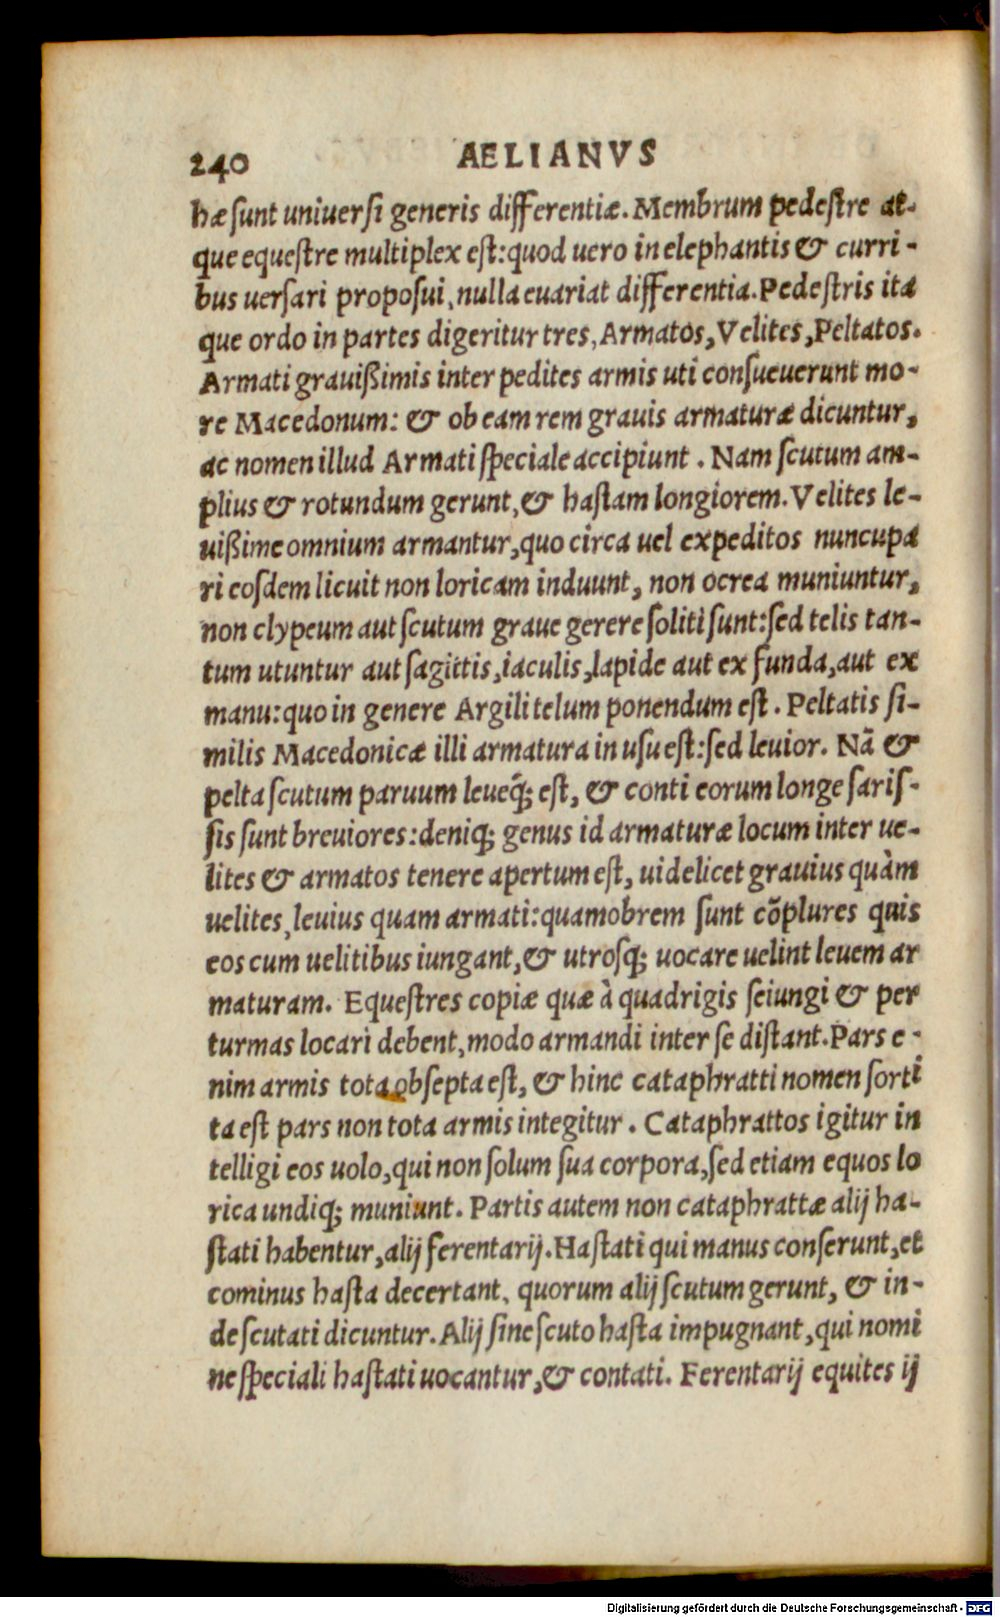 240 AELIANVS
hæ sunt uniuersi generis differentiæ. Membrum pedestre at-
que equestre multiplex est: quod uero in elephantis & curri-
bus uersari proposui, nulla euariat differentia. Pedestris ita
que ordo in partes digeritur tres, Armatos, Velites, Peltatos.
Armati grauißimis inter pedites armis uti consueuerunt mo-
re Macedonum: & ob eam rem grauis armaturæ dicuntur,
ac nomen illud Armati speciale accipiunt. Nam scutum am-
plius & rotundum gerunt, & hastam longiorem. Velites le-
uißime omnium armantur, quo circa uel expeditos nuncupa
ri eosdem licuit non loricam induunt, non ocrea muniuntur,
non clypeum aut scutum graue gerere soliti sunt: sed telis tan-
tum utuntur aut sagittis, iaculis, lapide aut ex funda, aut ex
manu: quo in genere Argili telum ponendum est. Peltatis si-
milis Macedonicæ illi armatura in usu est: sed leuior. Nã &
pelta scutum paruum leueq́; est, & conti eorum longe saris-
sis sunt breuiores: deniq; genus id armaturæ locum inter ue-
lites & armatos tenere apertum est, uidelicet grauius quàm
uelites, leuius quam armati: quamobrem sunt cõplures quis
eos cum uelitibus iungant, & utrosq; uocare uelint leuem ar
maturam. Equestres copiæ quæ à quadrigis seiungi & per
turmas locari debent, modo armandi inter se distant. Pars e-
nim armis tota obsepta est, & hinc cataphratti nomen sorti
ta est pars non tota armis integitur. Cataphrattos igitur in
telligi eos uolo, qui non solum sua corpora, sed etiam equos lo
rica undiq; muniunt. Partis autem non cataphrattæ alij ha-
stati habentur, alij ferentarij. Hastati qui manus conserunt, et
cominus hasta decertant, quorum alij scutum gerunt, & in-
de scutati dicuntur. Alij sine scuto hasta impugnant, qui nomi
ne speciali hastati uocantur, & contati. Ferentarij equites ij
Digitalisierung gefördert durch die Deutsche Forschungsgemeinschaft - DFG